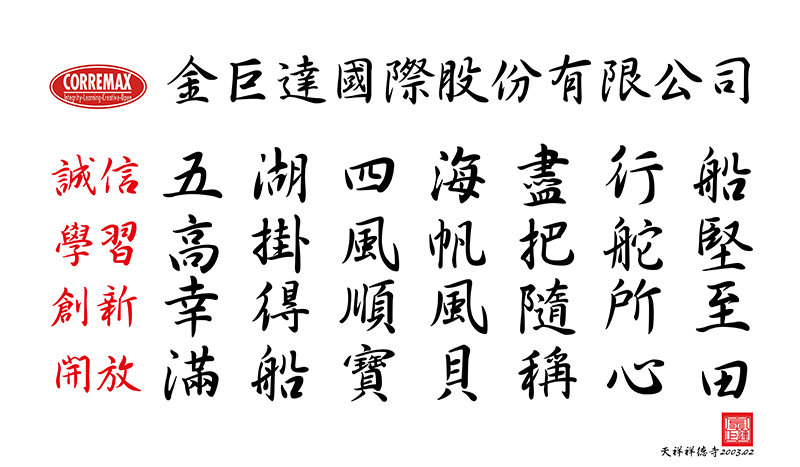 CORREMAX
Integrity-Learning-Creative-Open
金巨達國際股份有限公司
誠信 五湖四海盡行船
學習 高掛風帆把舵堅
創新 幸得順風隨所至
開放 滿船寶貝稱心田
天祥祥德寺2003.02